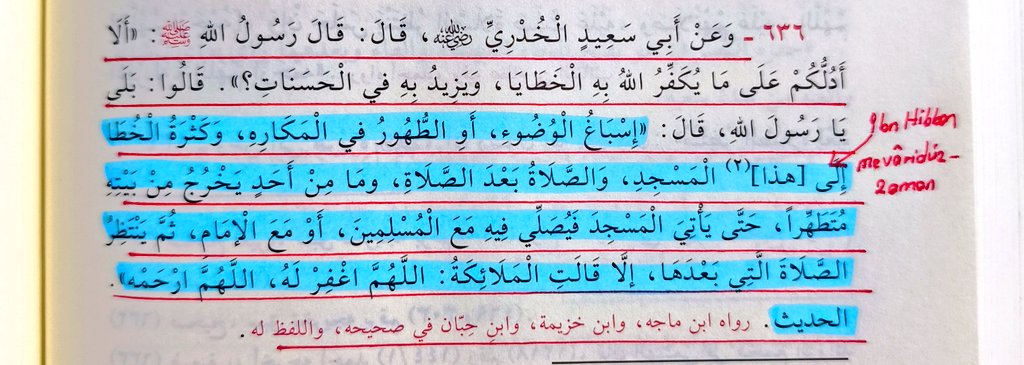 ٦٣٦ ـ وَعَنْ أَبِي سَعِيدٍ الْخُدْرِيِّ رضي الله عنه، قَالَ: قَالَ رَسُولُ اللهِ ﷺ: «أَلَا
أَدُلُّكُمْ عَلَى مَا يُكَفِّرُ اللهُ بِهِ الْخَطَايَا، وَيَزِيدُ بِهِ فِي الْحَسَنَاتِ؟». قَالُوا: بَلَى
يَا رَسُولَ اللهِ، قَالَ: «إِسْبَاغُ الْوُضُوءِ، أَوِ الطُّهُورُ فِي الْمَكَارِهِ، وَكَثْرَةُ الْخُطَا
إِلَى [هذا](٢) الْمَسْجِدِ، وَالصَّلَاةُ بَعْدَ الصَّلَاةِ، وما مِنْ أَحَدٍ يَخْرُجُ مِنْ بَيْتِهِ
مُتَطَهِّراً، حَتَّى يَأْتِيَ الْمَسْجِدَ فَيُصَلِّي فِيهِ مَعَ الْمُسْلِمِينَ، أَوْ مَعَ الْإمَامِ، ثُمَّ يَنْتَظِرُ
الصَّلَاةَ الَّتِي بَعْدَهَا، إِلَّا قَالَتِ الْمَلَائِكَةُ: اللَّهُمَّ اغْفِرْ لَهُ، اللَّهُمَّ ارْحَمْه».
الحديث. رواه ابن ماجه، وابن خزيمة، وابنِ حِبّان في صحيحه، واللفظ له.
Ibn Hibban
mevâridüz-
zaman